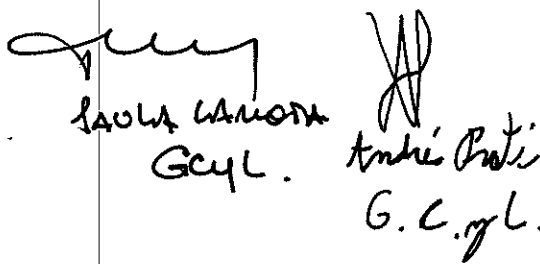 PAULA LAMOTA
GCyL.
Andrés
G. C. y L.